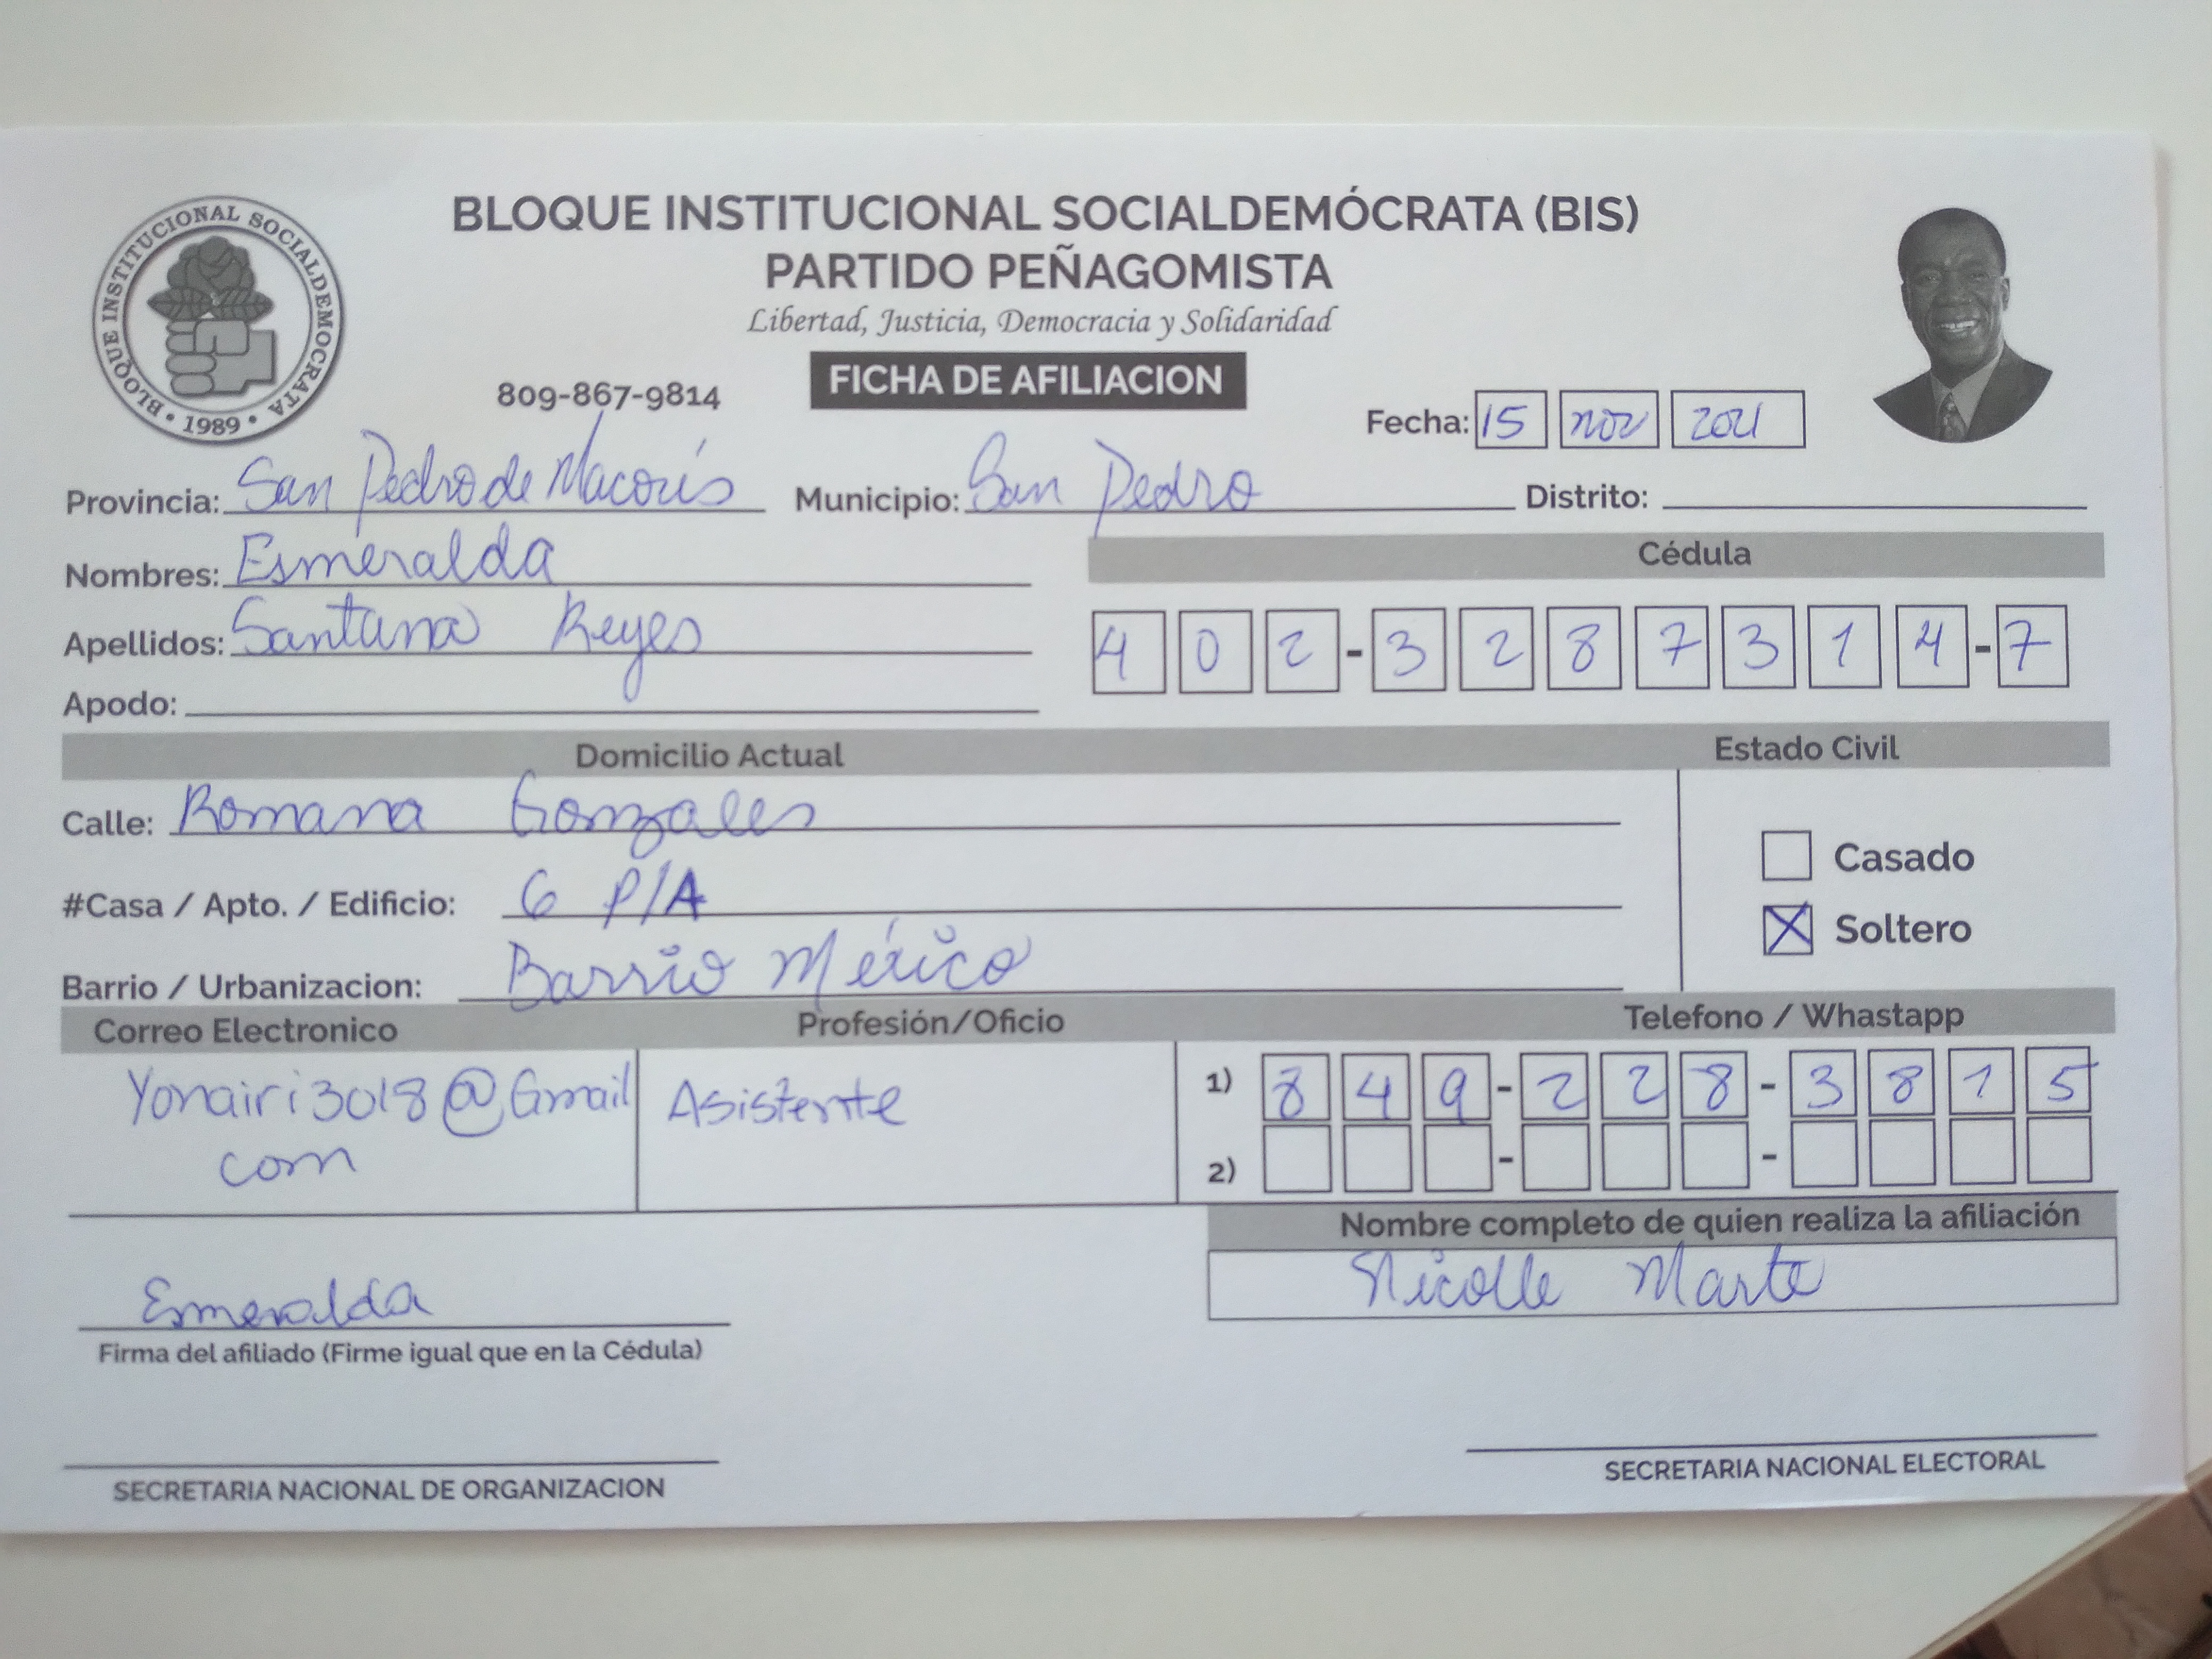 BLOQUE INSTITUCIONAL SOCIALDEMÓCRATA (BIS)
PARTIDO PEÑAGOMISTA
Libertad, Justicia, Democracia y Solidaridad
BLOQUE INSTITUCIONAL SOCIALDEMOCRATA • 1989 •
809-867-9814 FICHA DE AFILIACION
Fecha: 15 nov 2021
Provincia: San Pedro de Macorís Municipio: San Pedro Distrito:
Nombres: Esmeralda Cédula
Apellidos: Santana Reyes 4 0 2 - 3 2 8 7 3 1 4 - 7
Apodo:
Domicilio Actual Estado Civil
Calle: Romana Gonzales
Casado
#Casa / Apto. / Edificio: 6 P/A
Soltero
Barrio / Urbanizacion: Barrio México
Correo Electronico Profesión/Oficio Telefono / Whastapp
Yonairi3018@Gmail Asistente 1) 8 4 9 - 2 2 8 - 3 8 1 5
com 2) - -
Nombre completo de quien realiza la afiliación
Esmeralda Nicolle Marte
Firma del afiliado (Firme igual que en la Cédula)
SECRETARIA NACIONAL DE ORGANIZACION SECRETARIA NACIONAL ELECTORAL